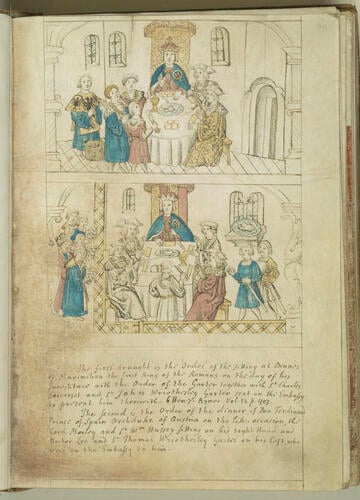 The first draught is the Order of the sitting at Dinner
of Maximilian the first King of the Romans on the day of his
Investiture with the Order of the Garter together with Sr. Charles
Somerset and Sr. John Wriothesley Garter sent on the Embassy
to present him therewith. 6 Hen. 7. Rymer Vol. 12. p. 403.
The second is the Order of the dinner of Don Ferdinand
Prince of Spain Archduke of Austria on the like occasion, the
Lord Morley and Sr. Wm. Hussey sitting on his right Hand and
Doctor Lee and Sr. Thomas Wriothesley Garter on his left, who
were on the Embassy to him.